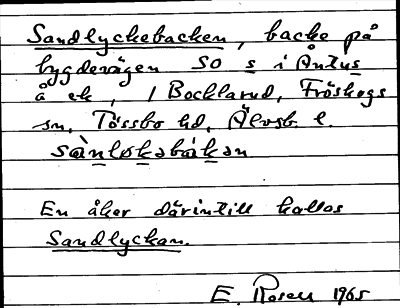 Sandlyckebacken, backe på
bygdevägen SO s i Åntus
å ek, 1 Bocklarud, Fröskogs
sn, Tössbo hd, Älvsb. l.
sànlokabàkan
En åker därintill kallas
Sandlyckan.
E. Rosell 1965